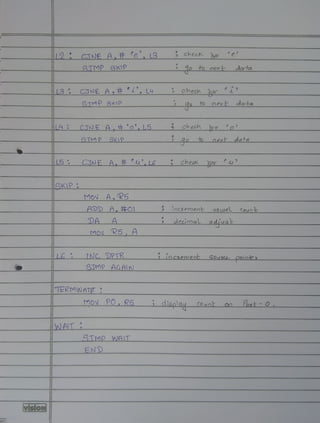 L2 : CJNE A, # 'e', L3 ; check for 'e'
SJMP SKIP ; go to next data
L3 : CJNE A, # 'i', L4 ; check for 'i'
SJMP SKIP ; go to next data
L4 : CJNE A, # 'o', L5 ; check for 'o'
SJMP SKIP ; go to next data
L5 : CJNE A, # 'u', L6 ; check for 'u'
SKIP :
MOV A, R5
ADD A, #01 ; increment vowel count
DA A ; decimal adjust
MOV R5, A
L6 : INC DPTR ; increment source pointer
SJMP AGAIN
TERMINATE :
MOV P0, R5 ; display count on Port-0.
WAIT :
SJMP WAIT
END
vision